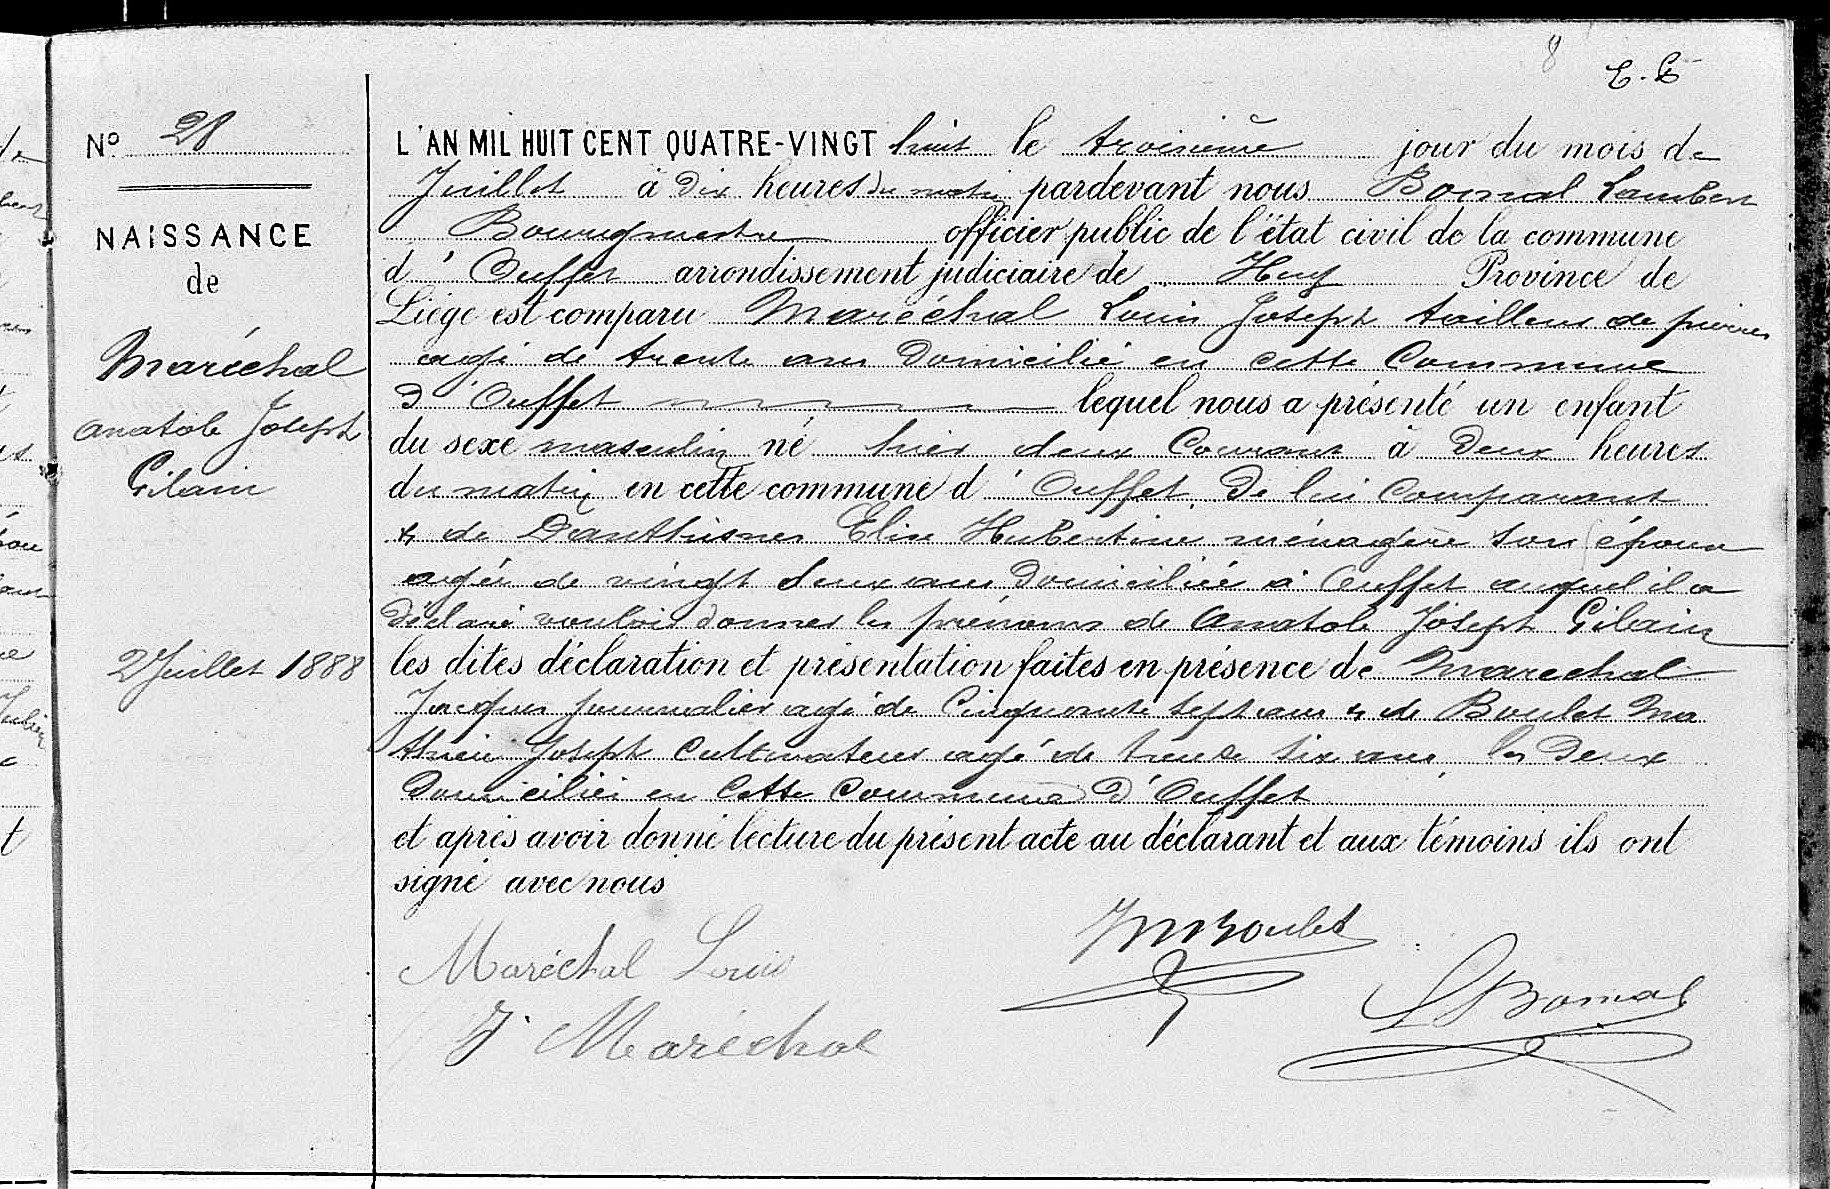 8
E. G
N° 28
NAISSANCE
de
Maréchal
Anatole Joseph
Gilain
2 Juillet 1888
L'AN MIL HUIT CENT QUATRE-VINGT huit le troisième jour du mois de
Juillet à dix heures du matin pardevant nous Bomal Lambert
Bourgmestre officier public de l'état civil de la commune
d'Ouffet arrondissement judiciaire de Huy Province de
Liége est comparu Maréchal Louis Joseph tailleur de pierres
agé de trente ans domicilié en cette Commune
d'Ouffet lequel nous a présenté un enfant
du sexe masculin né hier deux Courant à deux heures
du matin en cette commune d'Ouffet, de lui Comparant
& de Danthisnes Elise Hubertine ménagère son épouse
agée de vingt deux ans domiciliée à Ouffet auquel il a
déclaré vouloir donner les prénoms de Anatole Joseph Gilain
les dites déclaration et présentation faites en présence de Marechal
Jacques journalier agé de Cinquante sept ans & de Boulet Ma
thieu Joseph Cultivateur agé de trente six ans, les deux
domiciliés en cette Commune d'Ouffet
et après avoir donné lecture du présent acte au déclarant et aux témoins ils ont
signé avec nous
Maréchal Louis
JMBoulet
J. Maréchal
LBomal